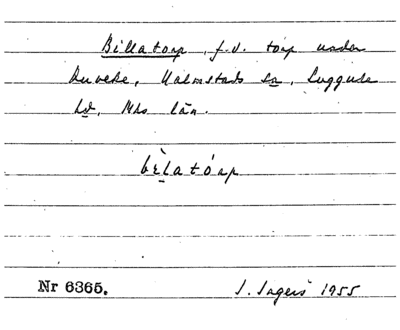 Billatorp, f.d. torp under
Duveke, Halmstads sn, Luggude
hd, Mhs län.
bèlatórp
Nr 6365. I. Ingers 1955